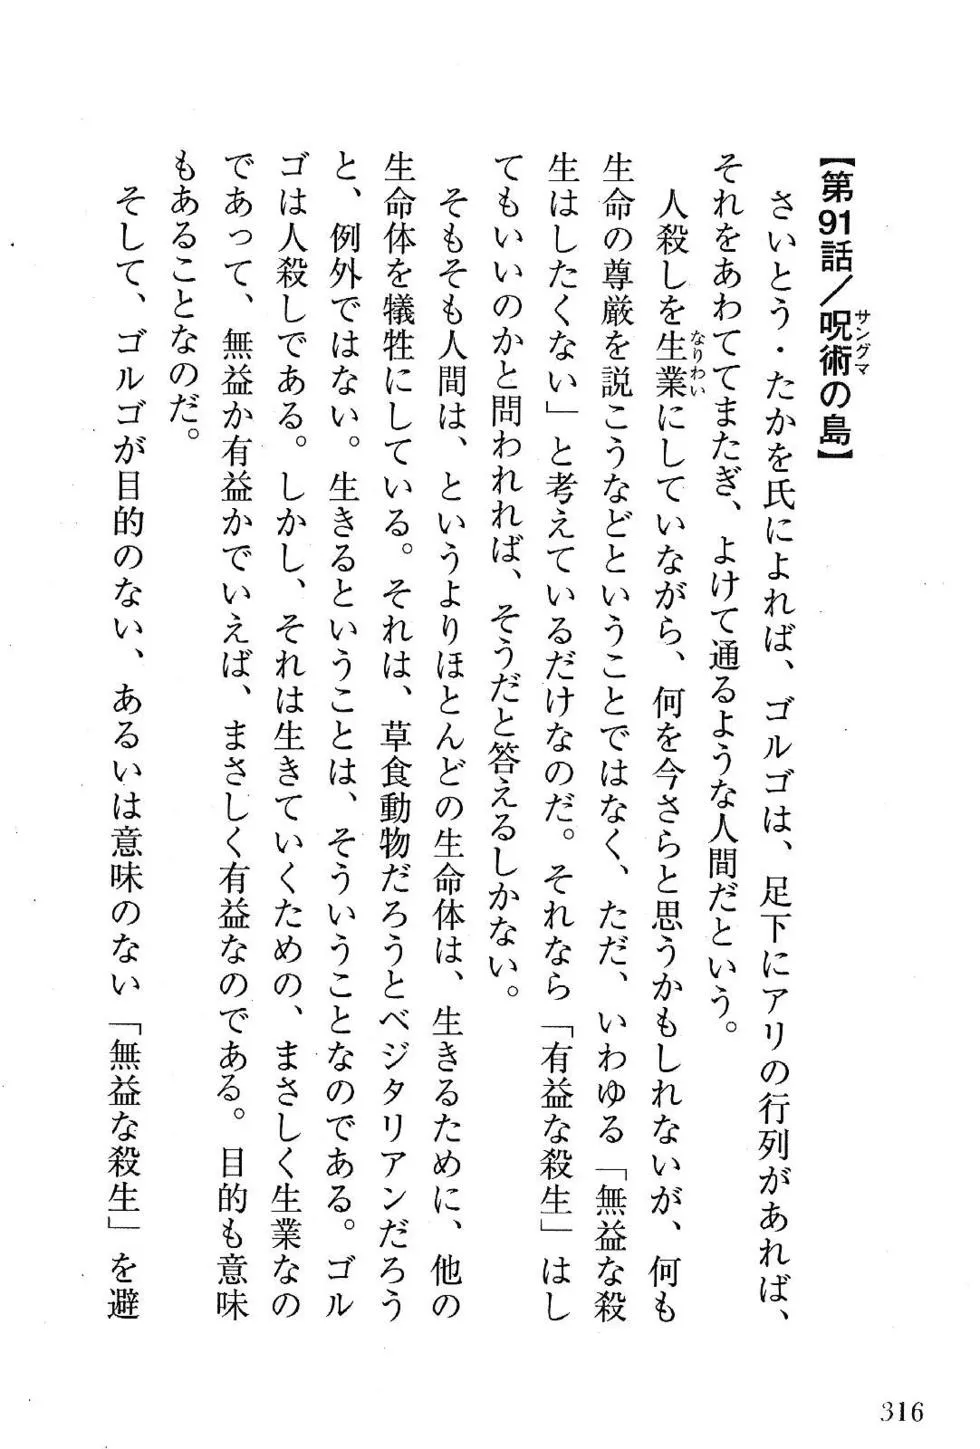 【第91話／呪術の島】
サングマ
さいとう・たかを氏によれば、ゴルゴは、足下にアリの行列があれば、
それをあわててまたぎ、よけて通るような人間だという。
人殺しを生業にしていながら、何を今さらと思うかもしれないが、何も
なりわい
生命の尊厳を説こうなどということではなく、ただ、いわゆる「無益な殺
生はしたくない」と考えているだけなのだ。それなら「有益な殺生」はし
てもいいのかと問われれば、そうだと答えるしかない。
そもそも人間は、というよりほとんどの生命体は、生きるために、他の
生命体を犠牲にしている。それは、草食動物だろうとベジタリアンだろう
と、例外ではない。生きるということは、そういうことなのである。ゴル
ゴは人殺しである。しかし、それは生きていくための、まさしく生業なの
であって、無益か有益かでいえば、まさしく有益なのである。目的も意味
もあることなのだ。
そして、ゴルゴが目的のない、あるいは意味のない「無益な殺生」を避
316